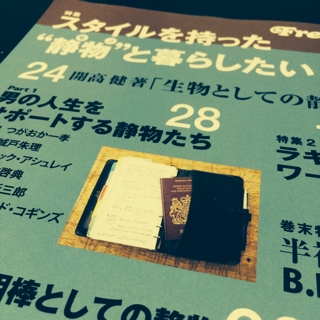 特集
スタイルを持った
“静物”と暮らしたい
24 開高 健著「生物としての静
Part 1
男の人生を
ポートする静物たち
28
つがおか一孝
城戸朱理
ック・アシュレイ
啓典
三郎
ド・コギンズ
特集2
ラギ
ワー
巻末特
半
B.
相棒としての静物